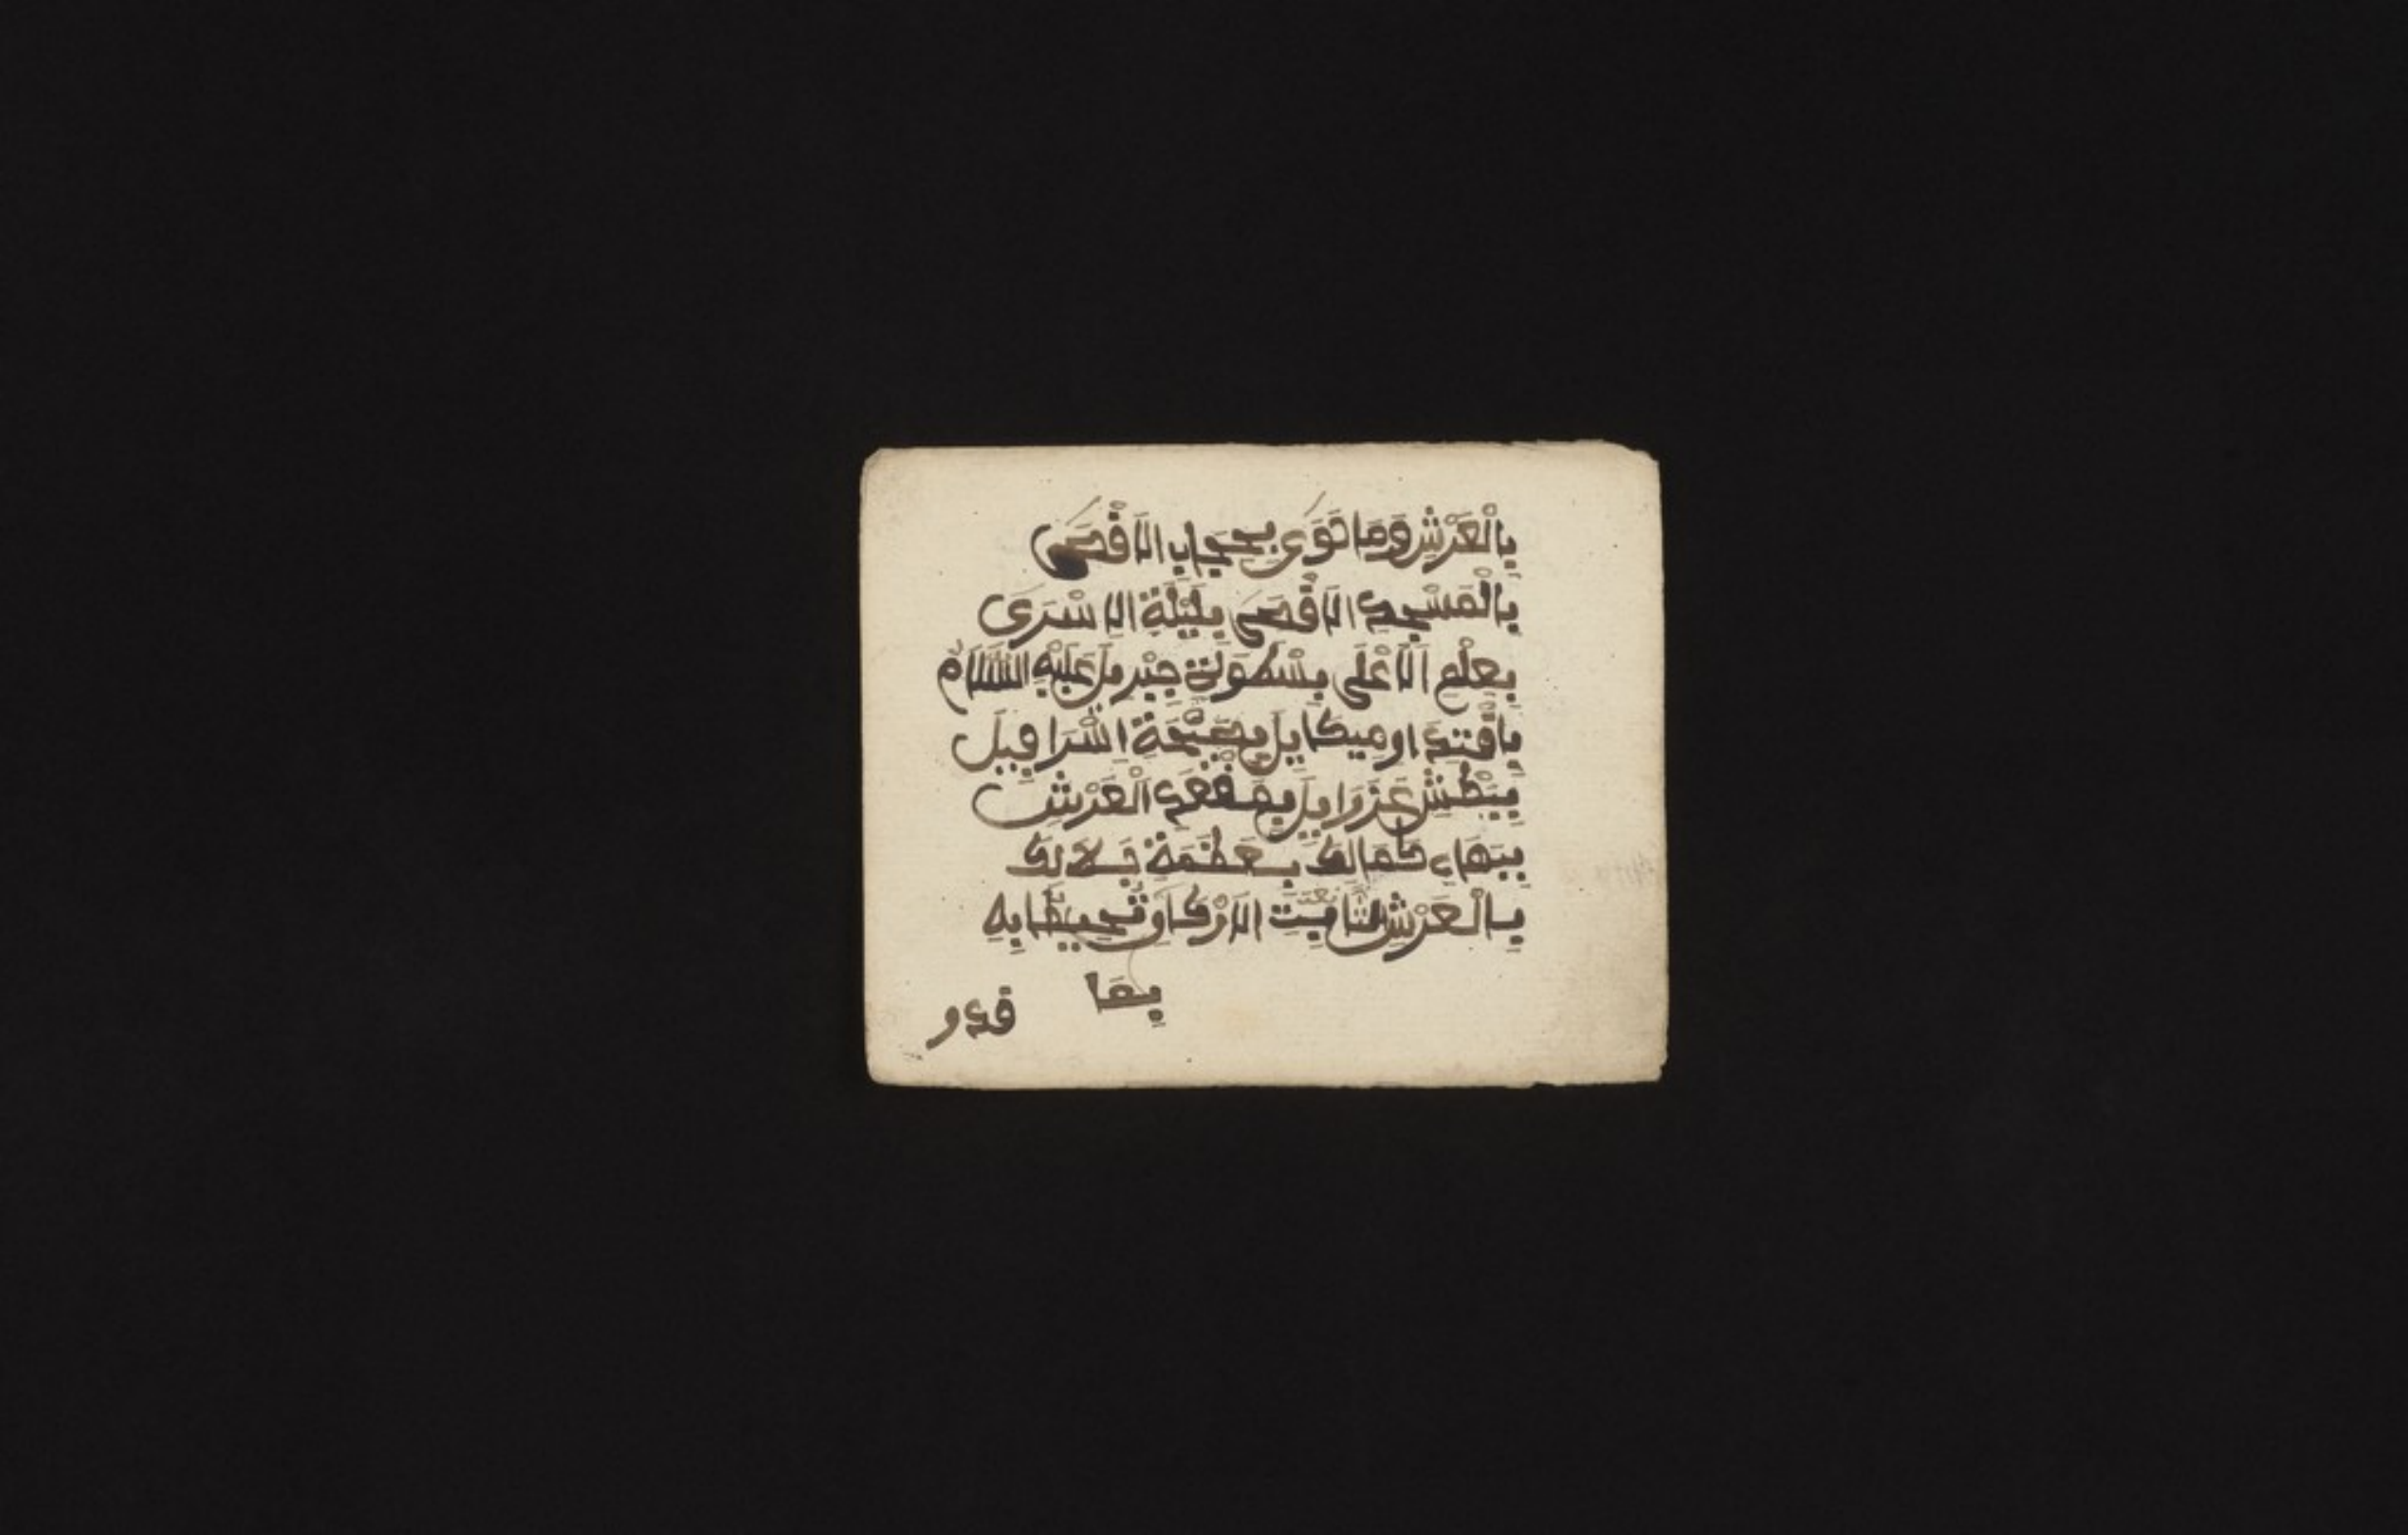 بِالْعَرْشِ وَمَا حَوَى بِحِجَابِ الَاقْصَى
بِالْمَسْجِدِ الَاقْصَى بِلَيْلَةِ الِاسْرَى
بِعِلْمِ الَاعْلَى بِسْطَوَتِ جِبْرِيلَ عَلَيْهِ السَّلَامُ
بِاقْتِدَاوِ مِيكَايِلَ بِصَيْحَةِ اِسْرَافِيلَ
بِبَطْشِ عَزْرَايِلَ بِمَقْعَدِ الْعَرْشِ
بِبَهَاءِ كَمَالِكَ بِعَظَمَةِ جَلَالِكَ
بِالْعَرْشِ الثَّابِتِ الَارْكَا وَتُحِيطَا بِهِ
بِهَا
قدو